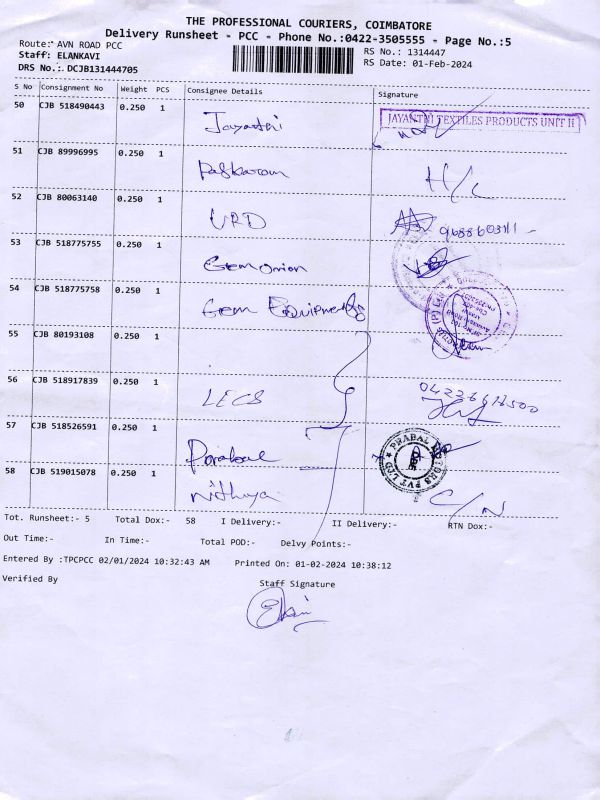 THE PROFESSIONAL COURIERS, COIMBATORE
Delivery Runsheet - PCC - Phone No.:0422-3505555 - Page No.:5
Route: AVN ROAD PCC
RS No.: 1314447
Staff: ELANKAVI
RS Date: 01-Feb-2024
DRS No.: DCJB131444705
S No Consignment No Weight PCS Consignee Details Signature
50 CJB 518490443 0.250 1 Jayanthi
JAYANTHI TEXTILES PRODUCTS UNIT II
51 CJB 89996995 0.250 1 Paskaran H/C
52 CJB 80063140 0.250 1 URD
53 CJB 518775755 0.250 1 Gem Onion
54 CJB 518775758 0.250 1 Gem Equipments
55 CJB 80193108 0.250 1
56 CJB 518917839 0.250 1 LECS
57 CJB 518526591 0.250 1 Prabal
PRABAL MOTORS PVT LTD
58 CJB 519015078 0.250 1 Nithya C/N
Tot. Runsheet:- 5 Total Dox:- 58 I Delivery:- II Delivery:- RTN Dox:-
Out Time:- In Time:- Total POD:- Delvy Points:-
Entered By :TPCPCC 02/01/2024 10:32:43 AM Printed On: 01-02-2024 10:38:12
Verified By Staff Signature